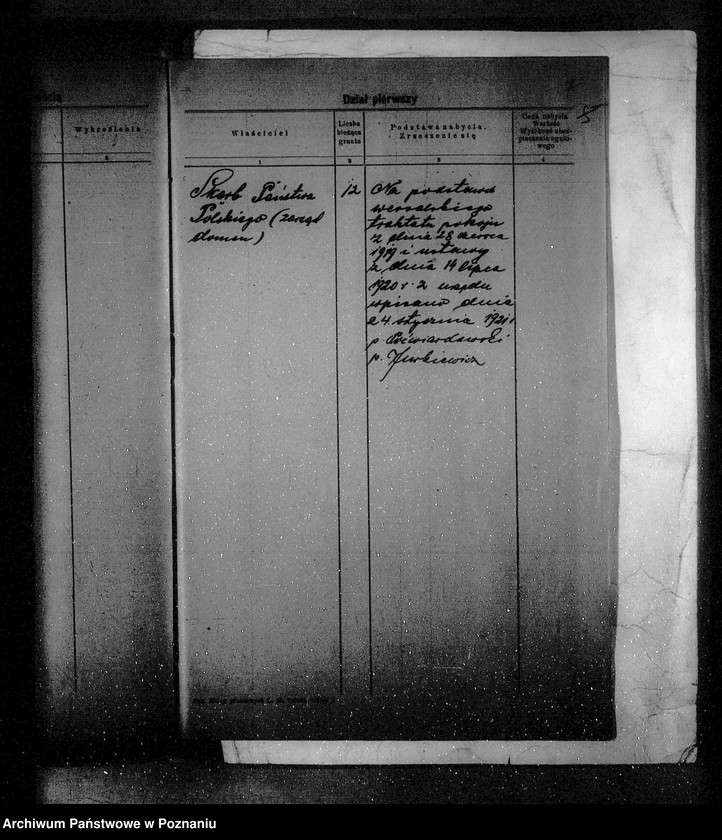 Wykreślenia
Dział pierwszy
5
Właściciel
Liczba
bieżąca
gruntu
Podstawa nabycia.
Zrzeczenie się
Cena nabycia
Wartość
Wysokość ubez-
pieczenia ognio-
wego
1
2
3
4
Skarb Państwa
Polskiego (zarząd
domen)
12
Na podstawie
wersalskiego
traktatu pokoju
z dnia 28 czerwca
1919 i ustawy
z dnia 14 lipca
1920 r. z urzędu
wpisano dnia
24. stycznia 1921 r
p.
p. Jurkiewicz
Archiwum Państwowe w Poznaniu